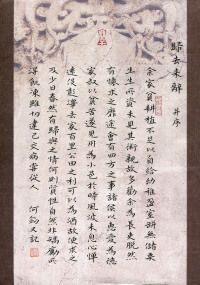 歸去來辭 并序
余家貧耕植不足以自給幼稚盈室缾無儲粟
生生所資未見其術親故多勸余為長吏脫然
有懷求之靡途會有四方之事諸侯以惠愛為
家叔以貧苦遂見用為小邑於時風波未息心憚
遠役彭澤去家百里公田之利足以為酒故便求之
及少日眷然有歸與之情何則質性自然非矯勵所
得飢凍雖切違己交病嘗從人